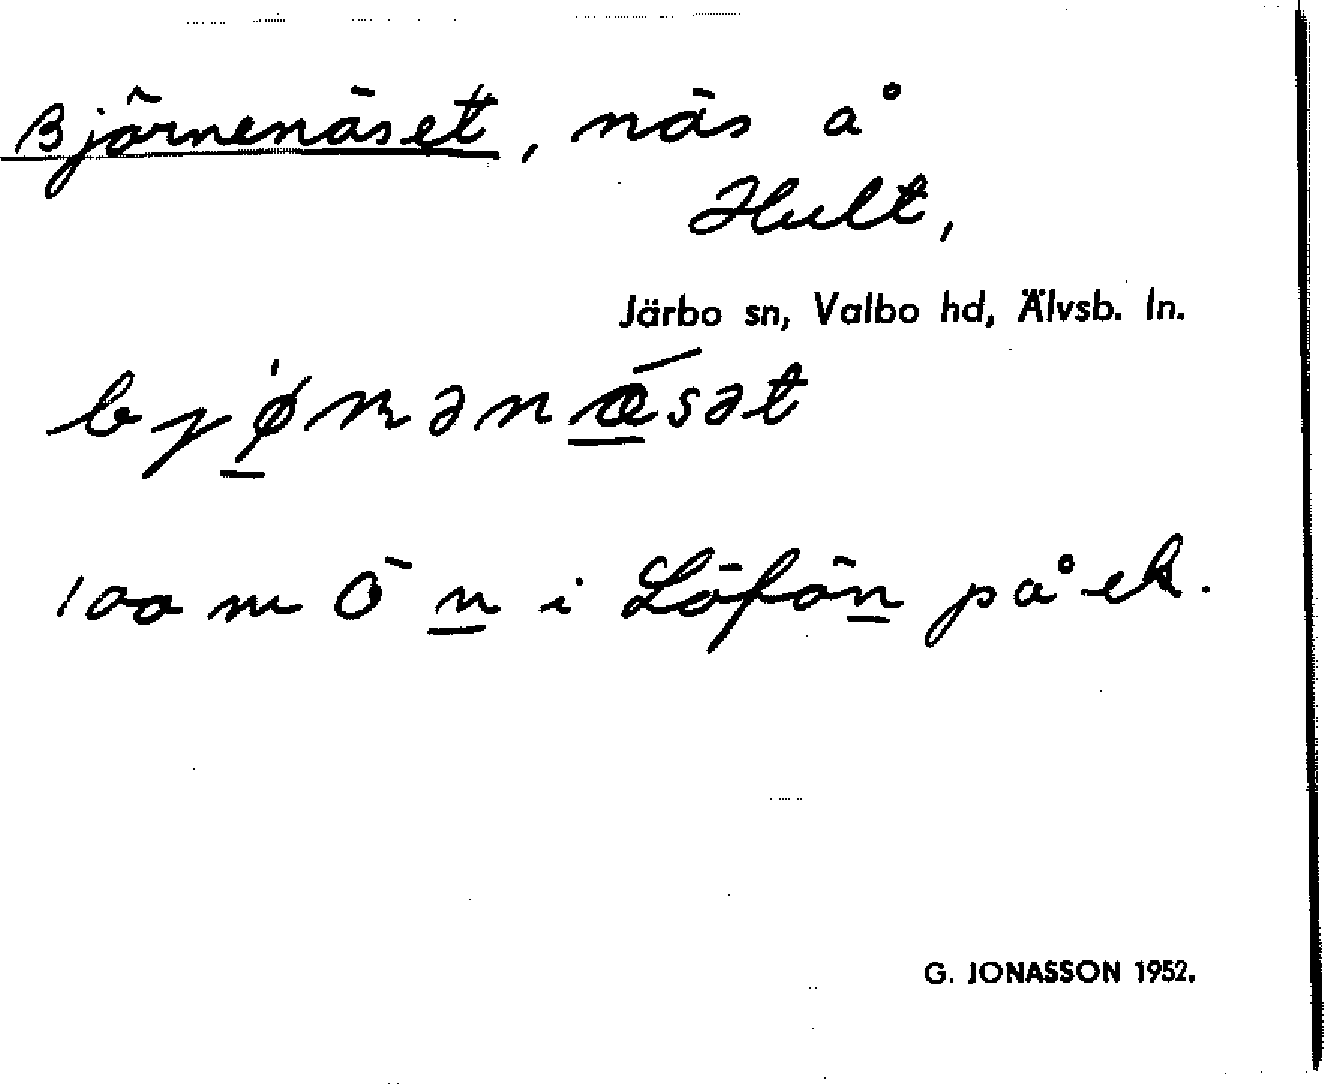 Björnenäset, näs å
Hult,
Järbo sn, Valbo hd, Älvsb. ln.
bjǿnənǽsət
100 m Ö n i Löfön på ek.
G. JONASSON 1952.